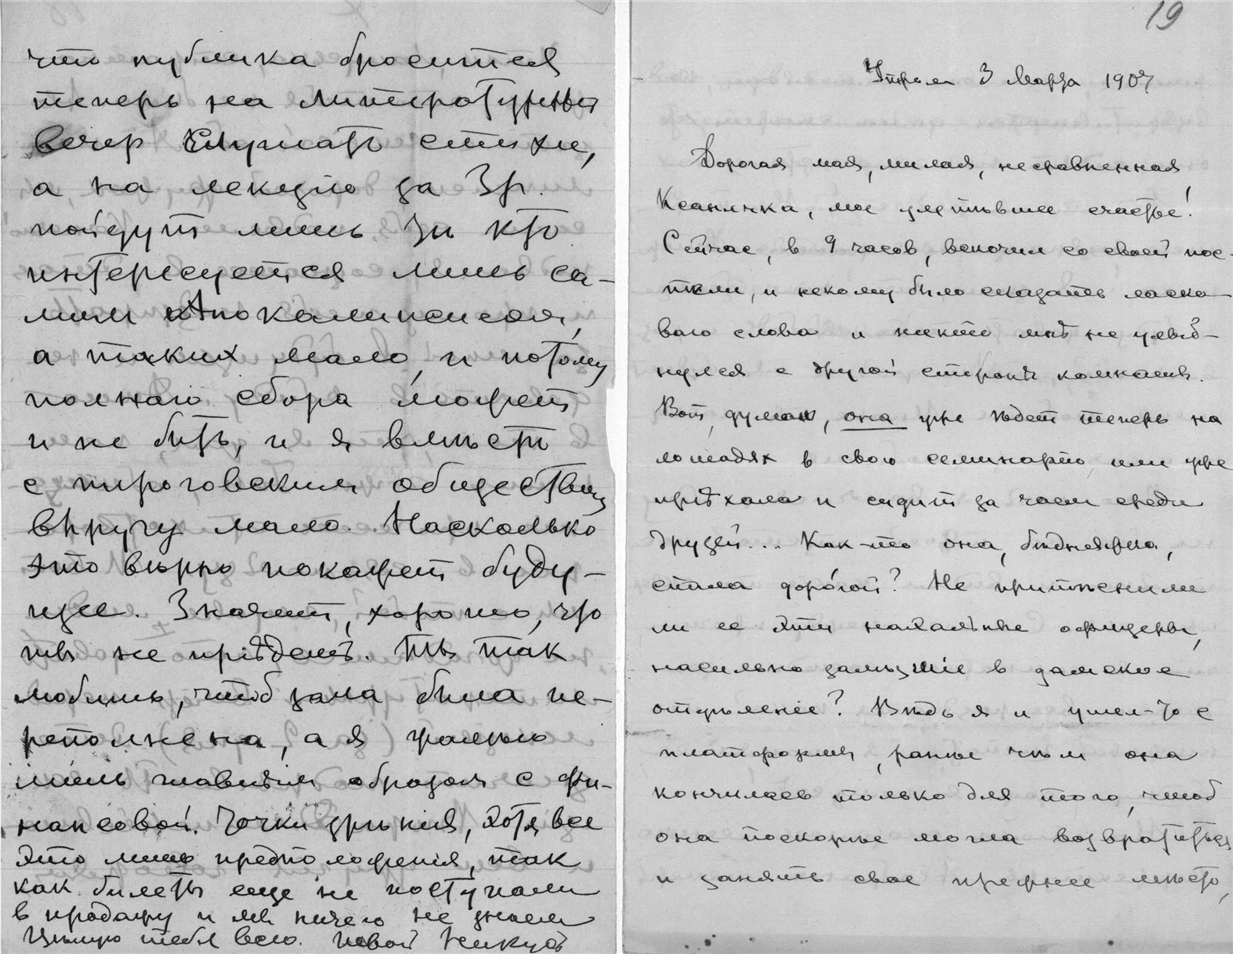 что публика бросится
теперь на литературный
вечер слушать стихи,
а на лекцію за 3 р.
пойдут лишь те кто
интересуется лишь са-
мим Апокалипсисом,
а таких мало, и потому
полнаго сбора может
и не быть, и я вместѣ
с пироговским обществом
выручу мало. Насколько
это вѣрно покажет буду-
щее. Значит, хорошо, что
ты не пріѣдешь. Ты так
любишь, чтоб зала была пе-
реполнена, а я
лишь главным образом с фи-
нансовой точки зрѣнія, хотя все
это лишь предположенія, так
как билеты еще не поступали
в продажу и мы ничего не знаем
Цѣлую тебя всю. Твой Никусь
19
Утром 3 Марта 1907
Дорогая моя, милая, несравненная
Ксанычка, мое улетѣвшее счастье!
Сейчас, в 9 часов, вскочил со своей пос-
тели, и некому было сказать ласко-
ваго слова и никто мнѣ не улыб-
нулся с другой стороны комнаты.
Вот, думаю, она уже ѣдет теперь на
лошадях в свою семинарію или уже
пріѣхала и сидит за чаем среди
друзей... Как-то она, бѣдняжка,
спала дорогой? Не притѣснили
ли ее эти нахальные офицеры,
насильно залѣзшіе в дамское
отдѣленіе? Вѣдь я и ушел-то с
платформы, ранѣе чѣм она
кончилась только для того, чтоб
она поскорѣе могла возвратиться
и занять свое прежнее мѣсто,